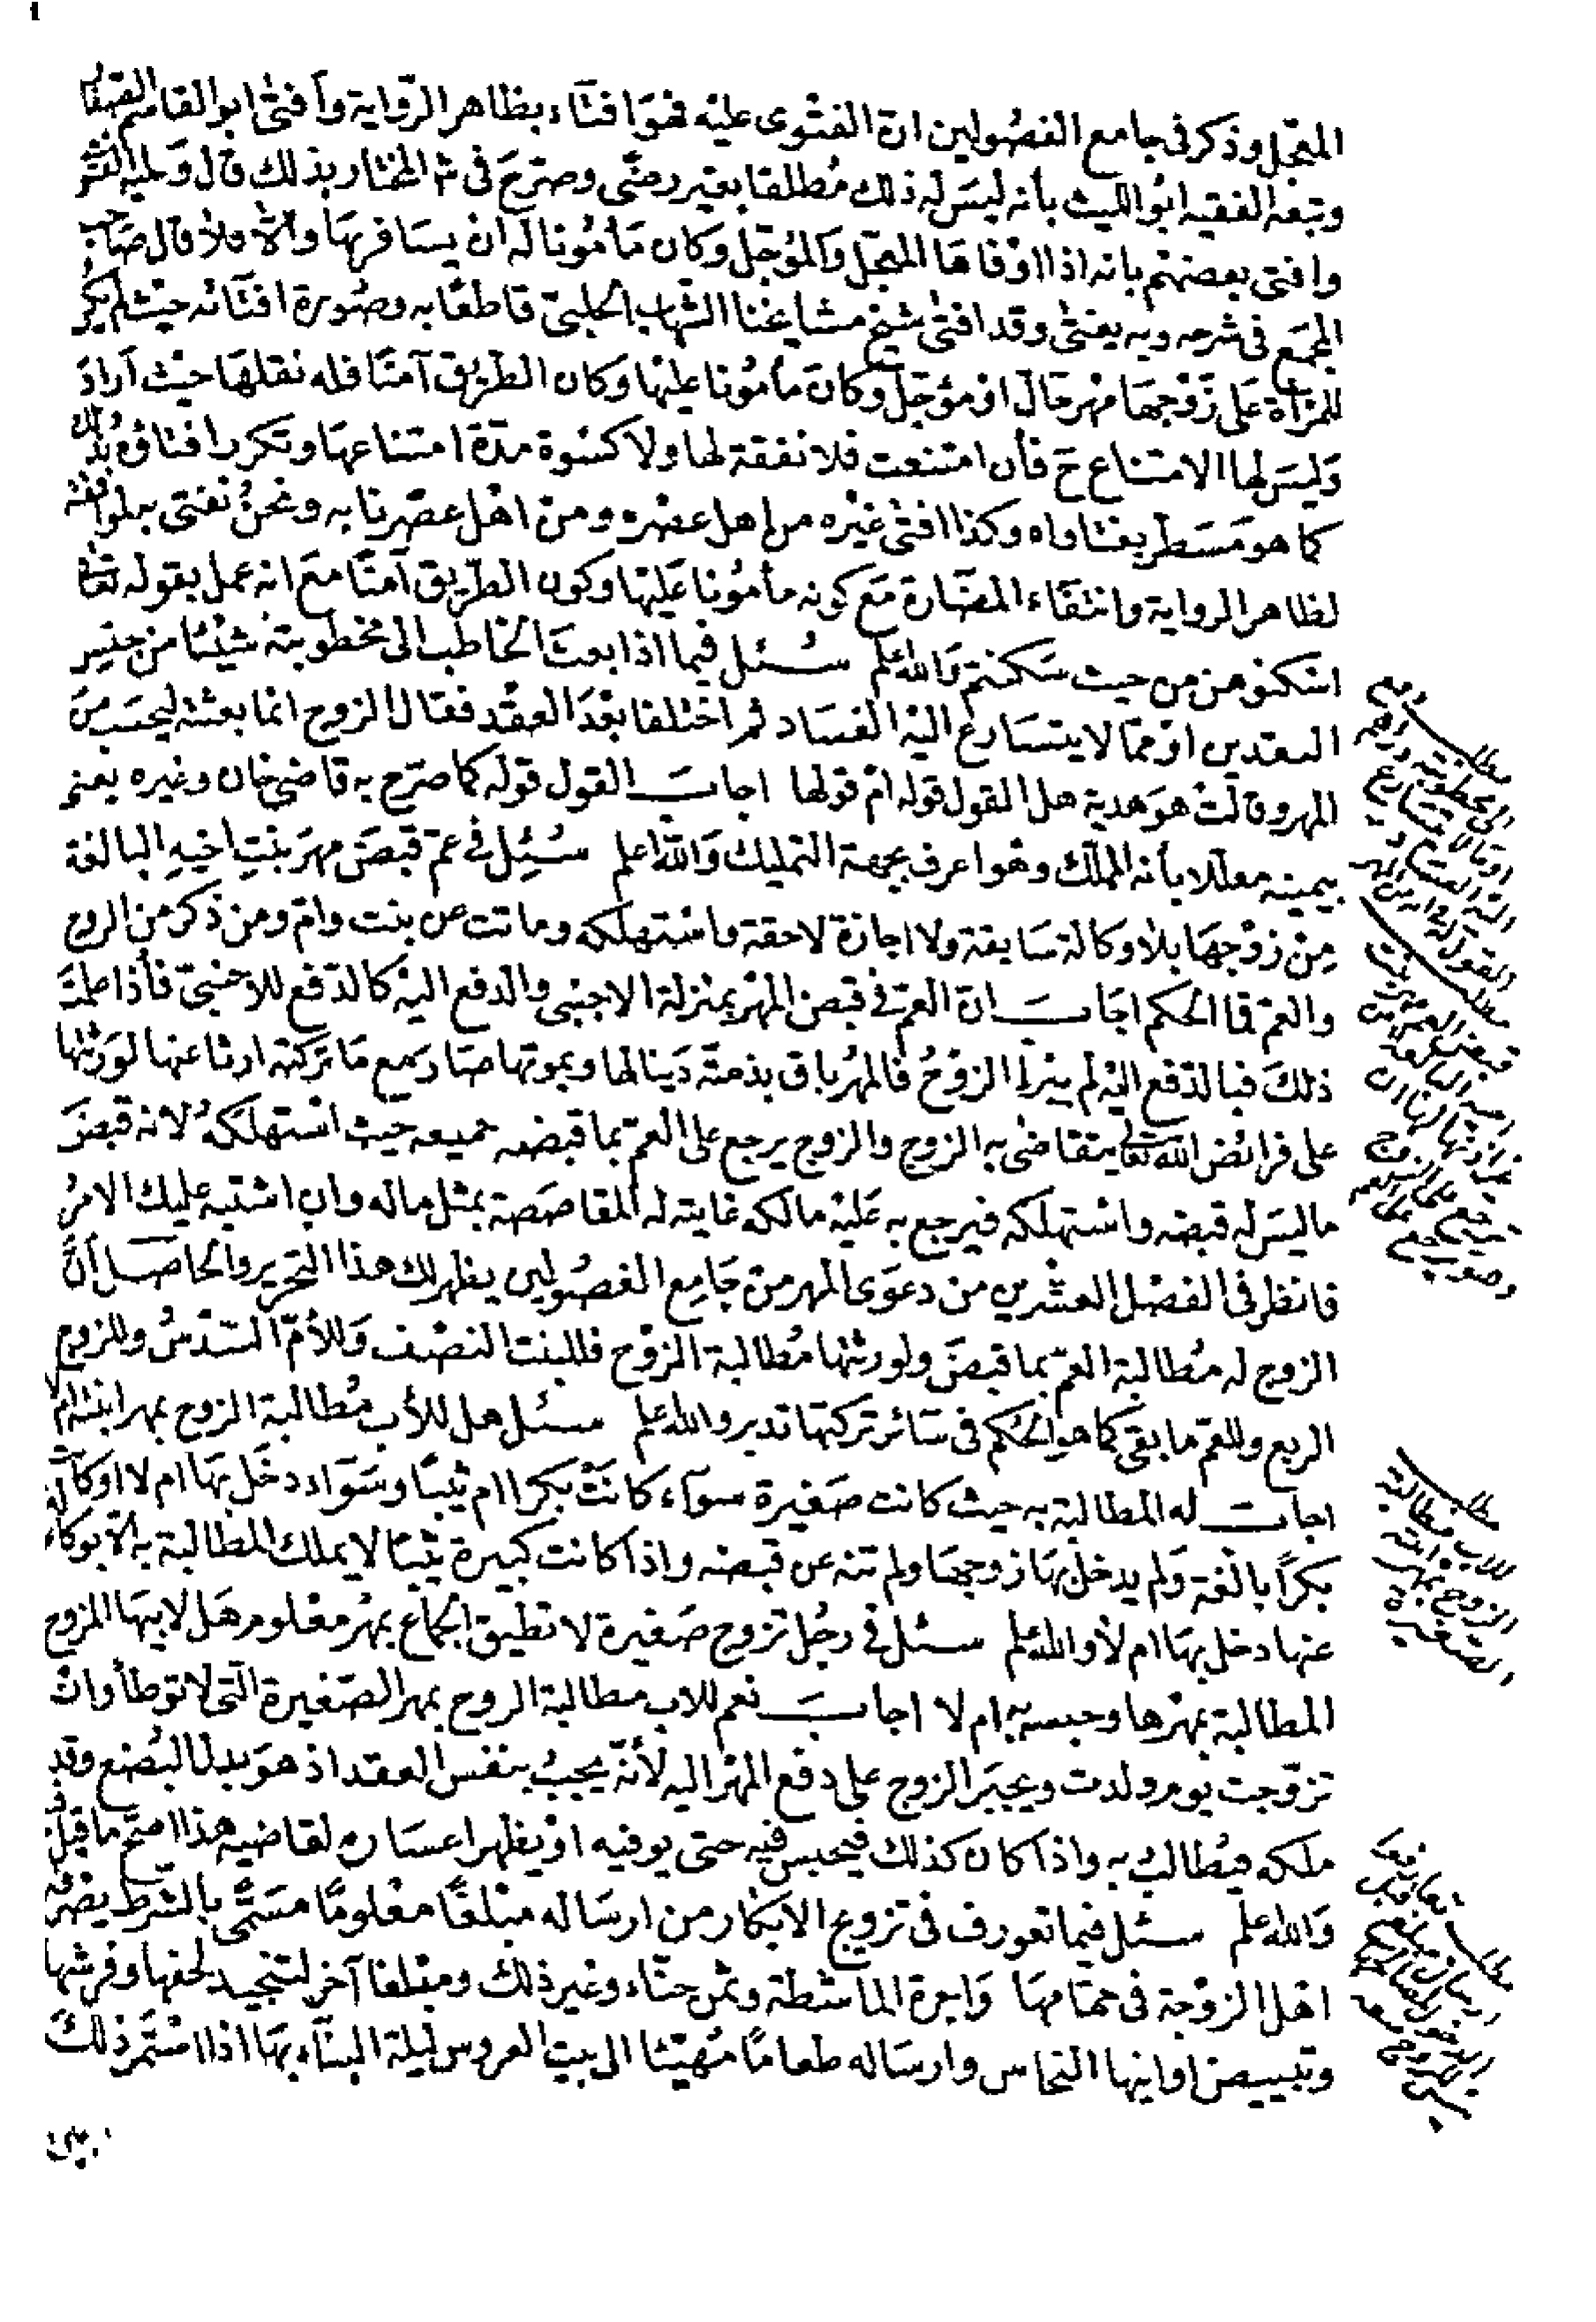 المعجل وذكر فى جامع الفصولين ان الفتوى عليه فهو افتاء بظاهر الرواية وأفتى ابو القاسم الصفار
وتبعه الفقيه ابو الليث بأنه ليس له ذلك مطلقا بغير رضى وصرح فى المختار بذلك قال وعليه الفتوى
وافتى بعضهم بانه اذا اوفاها المعجل والمؤجل وكان مأمونا له ان يسافر بها والا فلا قال صاحب
المجمع فى شرحه وبه يفتى وقد افتى شيخ مشايخنا الشهاب الحلبى قاطعا به وصورة افتائه حيث لم يكن
للمرأة على زوجها مهر حال او مؤجل وكان مأمونا عليها وكان الطريق آمنا فله نقلها حيث أراد
وليس لها الامتناع ح فأن امتنعت فلا نفقة لها ولا كسوة مدة امتناعها وتكرر افتاؤه بذلك
كما هو مسطر بفتاواه وكذا افتى غيره من اهل عصره ومن اهل عصرنا به ونحن نفتى به لموافقته
لظاهر الرواية وانتفاء المضارة مع كونه مأمونا عليها وكون الطريق آمنا مع انه عمل بقوله تعالى
اسكنوهن من حيث سكنتم والله اعلم سئل فيما اذا بعث الخاطب الى مخطوبته شيئا من جنس
النقدين او مما لا يتسارع اليه الفساد ثم اختلفا بعد العقد فقال الزوج انما بعثته ليحسب من
المهر وقالت هو هدية هل القول قوله ام قولها اجاب القول قوله كما صرح به قاضى خان وغيره يعنى
بيمينه معللا بأنه المملك وهو اعرف بجهة التمليك والله اعلم سئل فى عم قبض مهر بنت اخيه البالغة
من زوجها بلا وكالة سابقة ولا اجازة لاحقة واستهلكه وماتت عن بنت وام ومن ذكر من الزوج
والعم فما الحكم اجاب ان العم فى قبض المهر بمنزلة الاجنبى والدفع اليه كالدفع للاجنبى فأذا علمت
ذلك فبالدفع اليه لم يبرا الزوج فالمهر باق بذمته دينا لها وبموتها صار جميع ما تركته ارثا عنها لورثتها
على فرائض الله تعالى يتقاضى به الزوج والزوج يرجع على العم بما قبضه جميعه حيث استهلكه لانه قبض
ما ليس له قبضه واستهلكه فيرجع به عليه مالكه غايته له المقاصصة بمثل ماله وان اشتبه عليك الامر
فانظر فى الفصل العشرين من دعوى المهر من جامع الفصولين يظهر لك هذا التحرير والحاصل أن
الزوج له مطالبة العم بما قبض ولورثتها مطالبة الزوج فللبنت النصف وللأم السدس وللزوج
الربع وللعم ما بقى كما هو الحكم فى سائر تركتها تدبر والله اعلم سئل هل للأب مطالبة الزوج بمهر ابنته ام لا
اجاب له المطالبة به حيث كانت صغيرة سوآء كانت بكرا ام ثيبا وسوآء دخل بها ام لا او كانت
بكرا بالغة ولم يدخل بها زوجها ولم تنه عن قبضه واذا كانت كبيرة ثيبا لا يملك المطالبة به الا بوكالة
عنها دخل بها ام لا والله اعلم سئل فى رجل تزوج صغيرة لا تطيق الجماع بمهر معلوم هل لابيها المزوج
المطالبة بمهرها وحبسه به ام لا اجاب نعم للاب مطالبة الزوج بمهر الصغيرة التى لا توطأ وان
تزوجت يوم ولدت ويجبر الزوج على دفع المهر اليه لأنه يجب بنفس العقد اذ هو بدل البضع وقد
ملكه فيطالب به واذا كان كذلك فيحبس فيه حتى يوفيه او يظهر اعساره لقاضيه هذا اصح ما قيل فيه
والله اعلم سئل فيما تعورف فى تزوج الابكار من ارساله مبلغا معلوما مسمى بالشرط يصرفه
اهل الزوجة فى حمامها واجرة الماشطة وثمن حناء وغير ذلك ومبلغا آخر لتنجيد لحفها وفرشها
وتبييض اوانيها النحاس وارساله طعاما مهيئا الى بيت العروس ليلة البناء بها اذا استمر ذلك